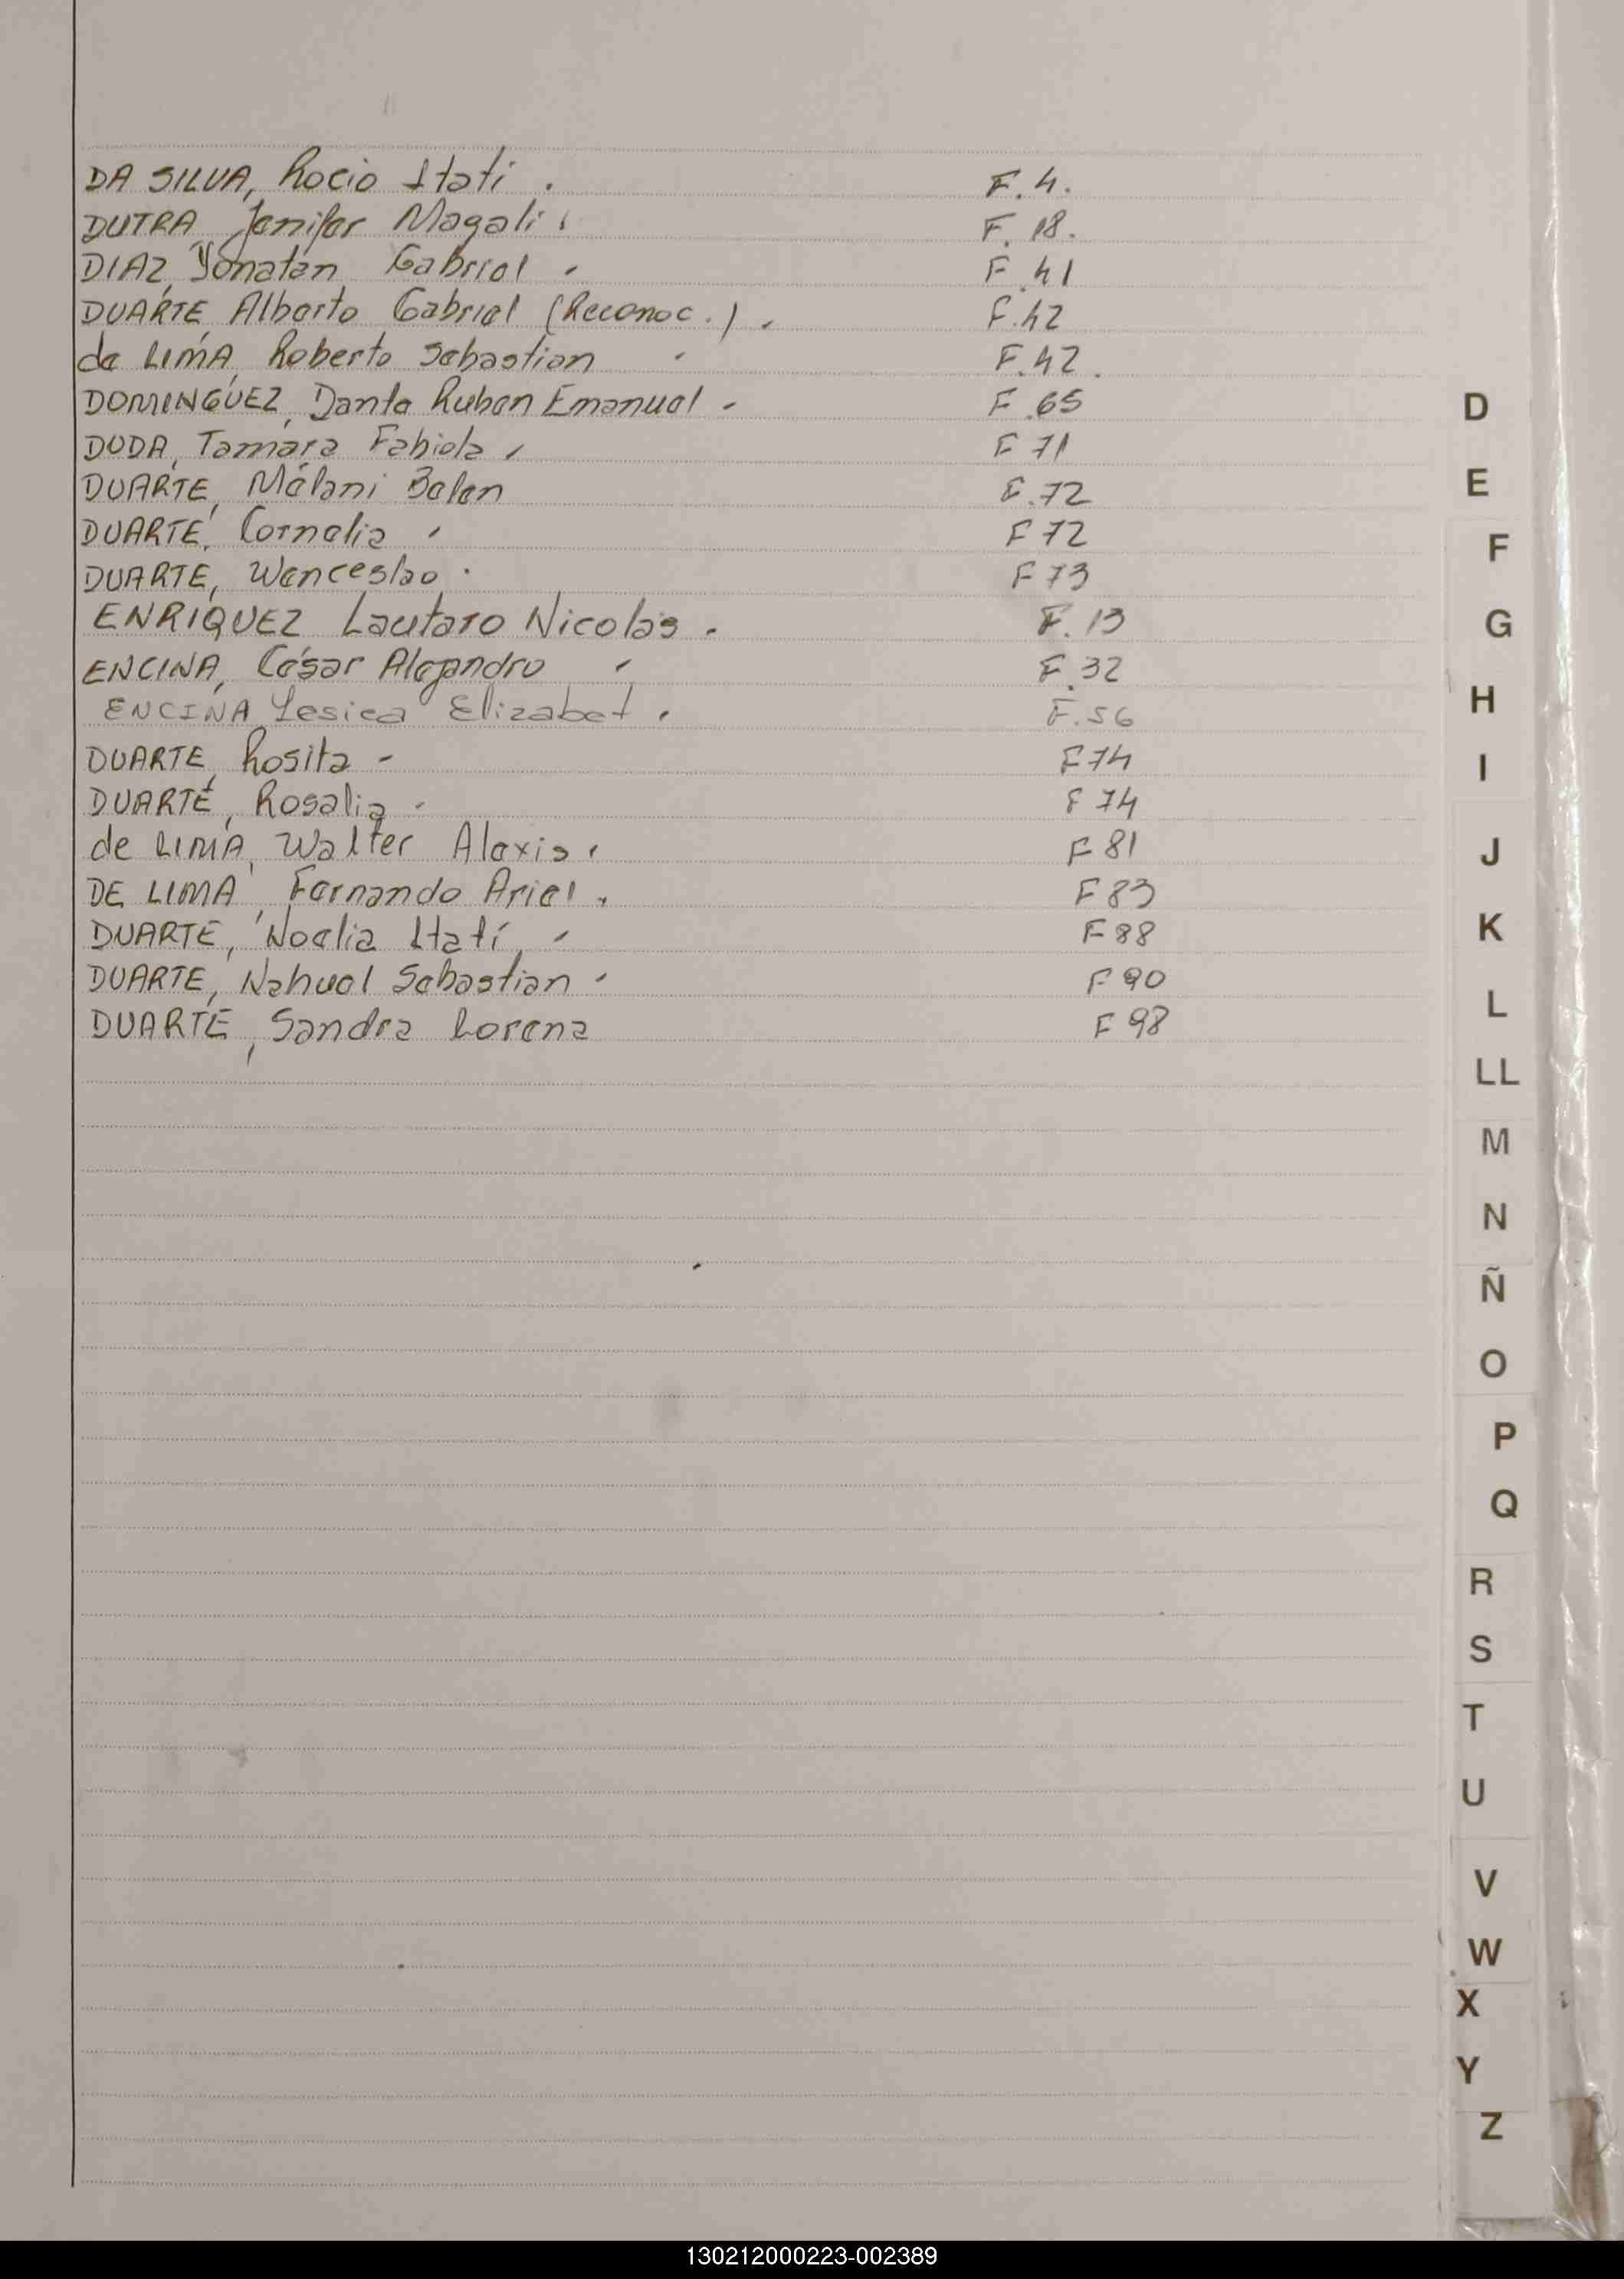 DA SILVA, Rocio Itatí. F. 4.
DUTRA, Jenifer Magali. F. 18.
DIAZ, Yonatán Gabriel - F. 41
DUARTE, Alberto Gabriel (Reconoc.). F. 42
de LIMA, Roberto Sebastian - F. 42.
DOMINGUEZ, Dante Ruben Emanuel - F. 65
DUDA, Tamara Fabiola - F 71
DUARTE, Mélani Belen F. 72
DUARTE, Cornelia - F 72
DUARTE, Wenceslao. F 73
ENRIQUEZ Lautaro Nicolás. F. 13
ENCINA, César Alejandro - F. 32
ENCINA, Yesica Elizabet. F. 56
DUARTE, Rosita - F 74
DUARTE, Rosalia - F 74
de LIMA, Walter Alexis. F 81
DE LIMA, Fernando Ariel. F 83
DUARTE, Noelia Itatí, - F 88
DUARTE, Nahuel Sebastian - F 90
DUARTE, Sandra Lorena F 98
D
E
F
G
H
I
J
K
L
LL
M
N
Ñ
O
P
Q
R
S
T
U
V
W
X
Y
Z
130212000223-002389